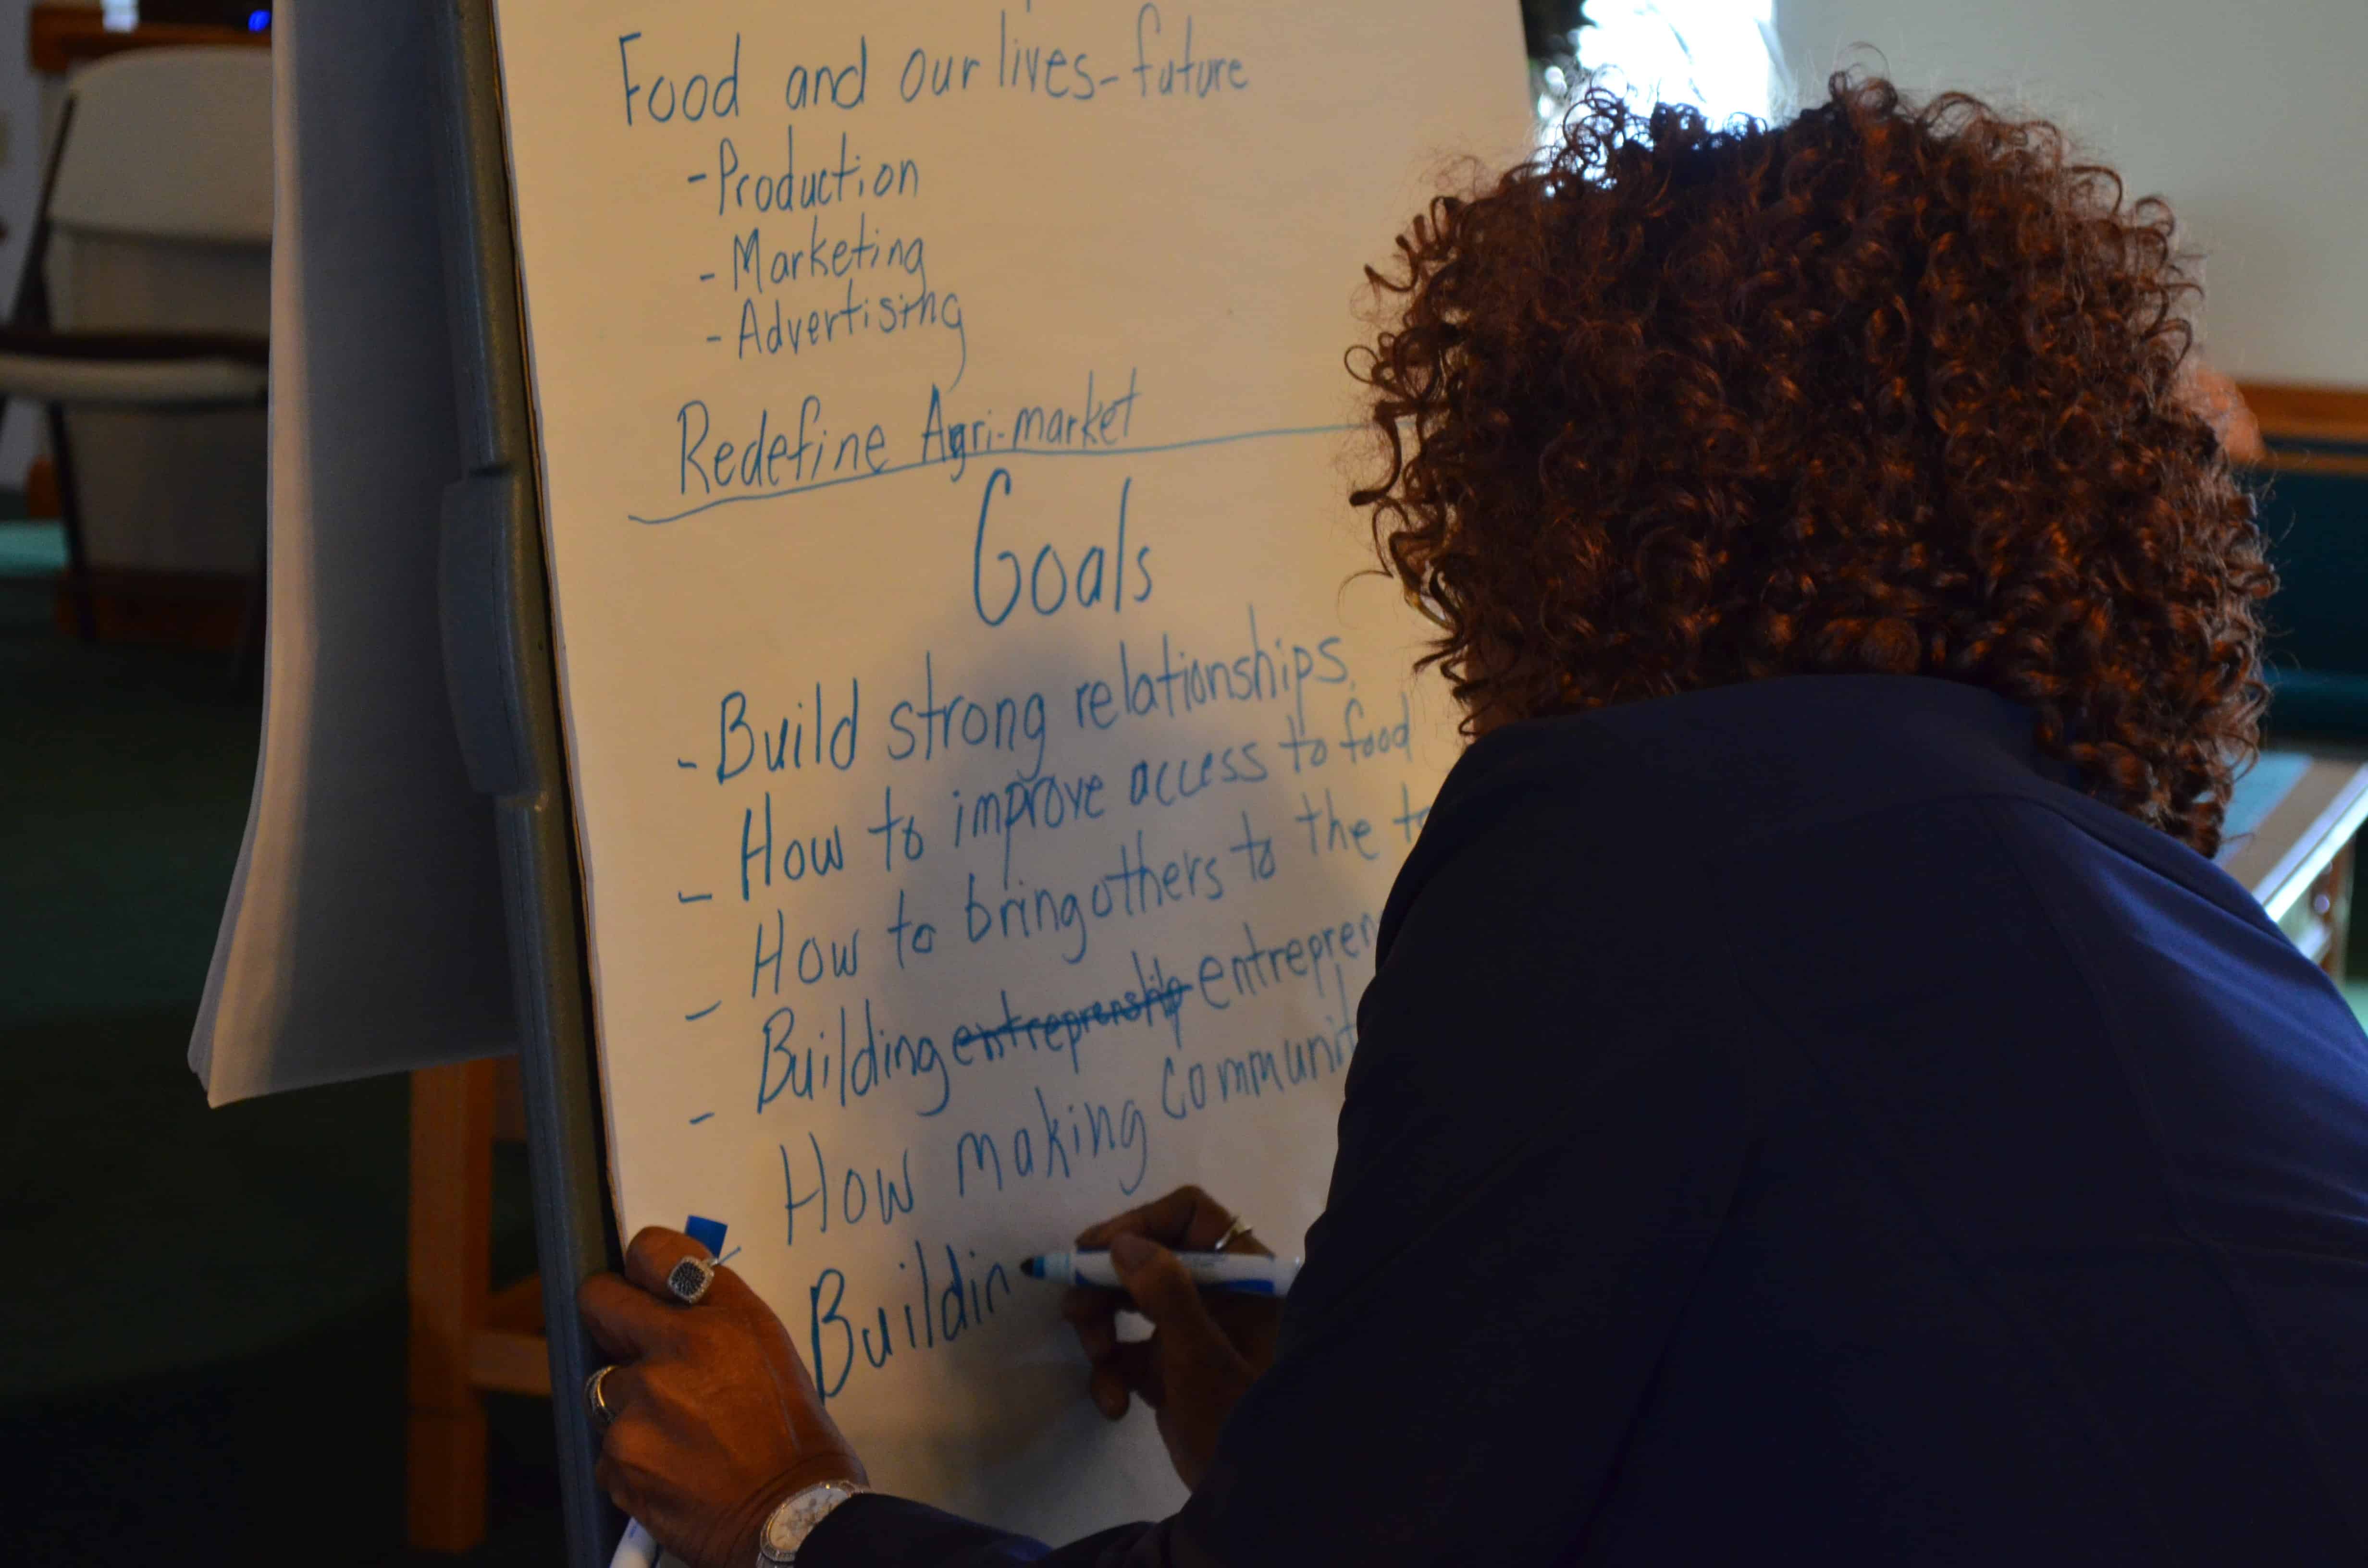 Food and our lives-future
-Production
- Marketing
- Advertising
Redefine Agri-market
Goals
- Build strong relationships.
- How to improve access to food
- How to bring others to the
- Building entreprenship entrepren
- How making communit
Buildin